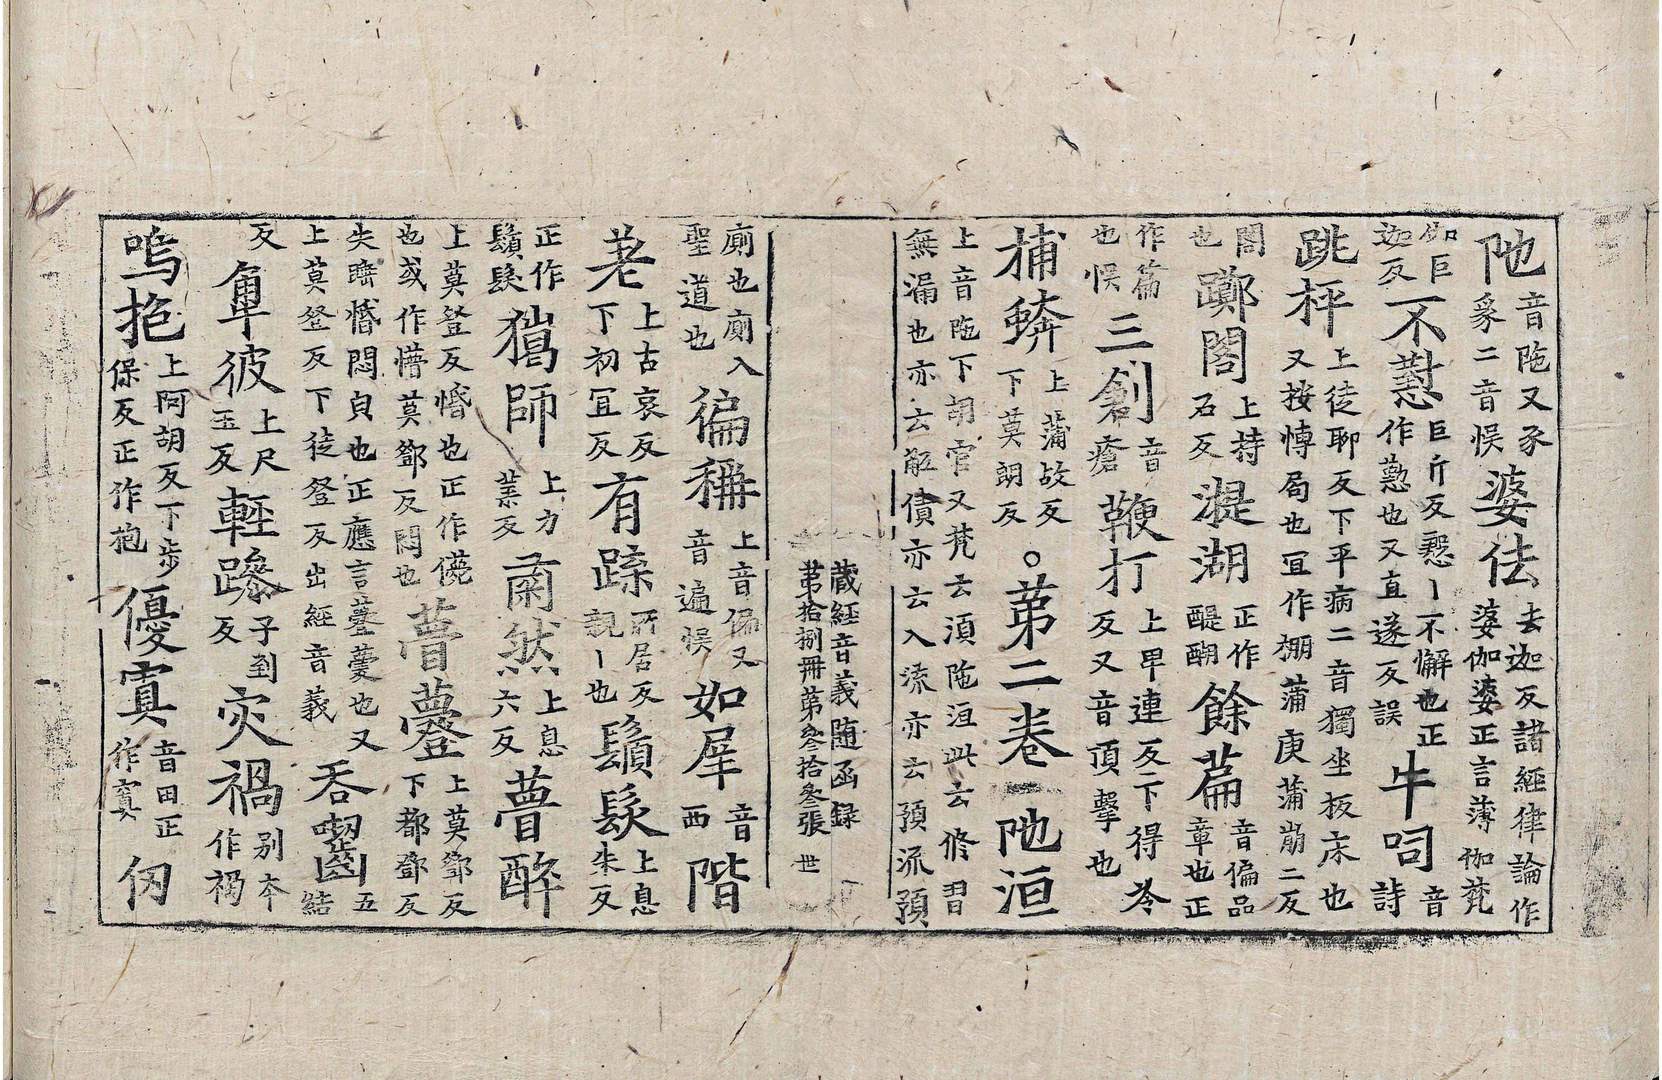 阤音陁又豸豕二音悮婆佉去迦反諸經律論作婆伽婆正言薄伽梵
伽巨迦反不懃巨斤反慇丨不懈也正作懃也又直遂反誤牛呞音詩
跳枰上徒聊反下平病二音獨坐板床也又按慱局也冝作棚蒲庚蒲崩二反
閣也躑閣上持石反湜湖正作醍醐餘篇音偏品章也正
作篇也悮三創音瘡鞭打上卑連反下得冷反又音頂擊也
捕蟒上蒲故反下莫朗反。苐二卷阤洹
上音陁下胡官反梵云湏陁洹此云修習
無漏也亦云䏻債亦云入流亦云預流預
蔵經音義随函録
苐拾捌冊苐叄拾叄張 世
廁也廁入聖道也徧稱上音偏又音遍悮如犀音西階
荖上古哀反下初冝反有踈所居反親丨也鬚髮上息朱反
正作鬚髮獦師上力葉反肅然上息六反瞢醉
上莫登反惛也正作儚也或作懵莫鄧反悶也瞢䒭上莫鄧反下都鄧反
失睡惛悶皃也正應言薹薹也又上莫登反下徒登反出經音義吞齧五結
反䡄彼上尺玉反輕躁子到反灾禍別夲作禍
嗚抱上阿胡反下步保反正作抱優寘音田正作寘仭